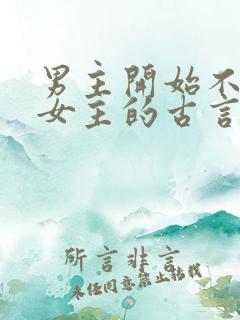 男主開始不
女主的古言
所言非言
未經同意禁止转载